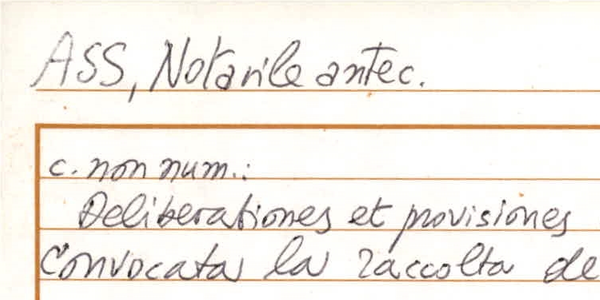 ASS, Notarile antec.
c. non num.:
Deliberationes et provisiones
Convocata la raccolta de